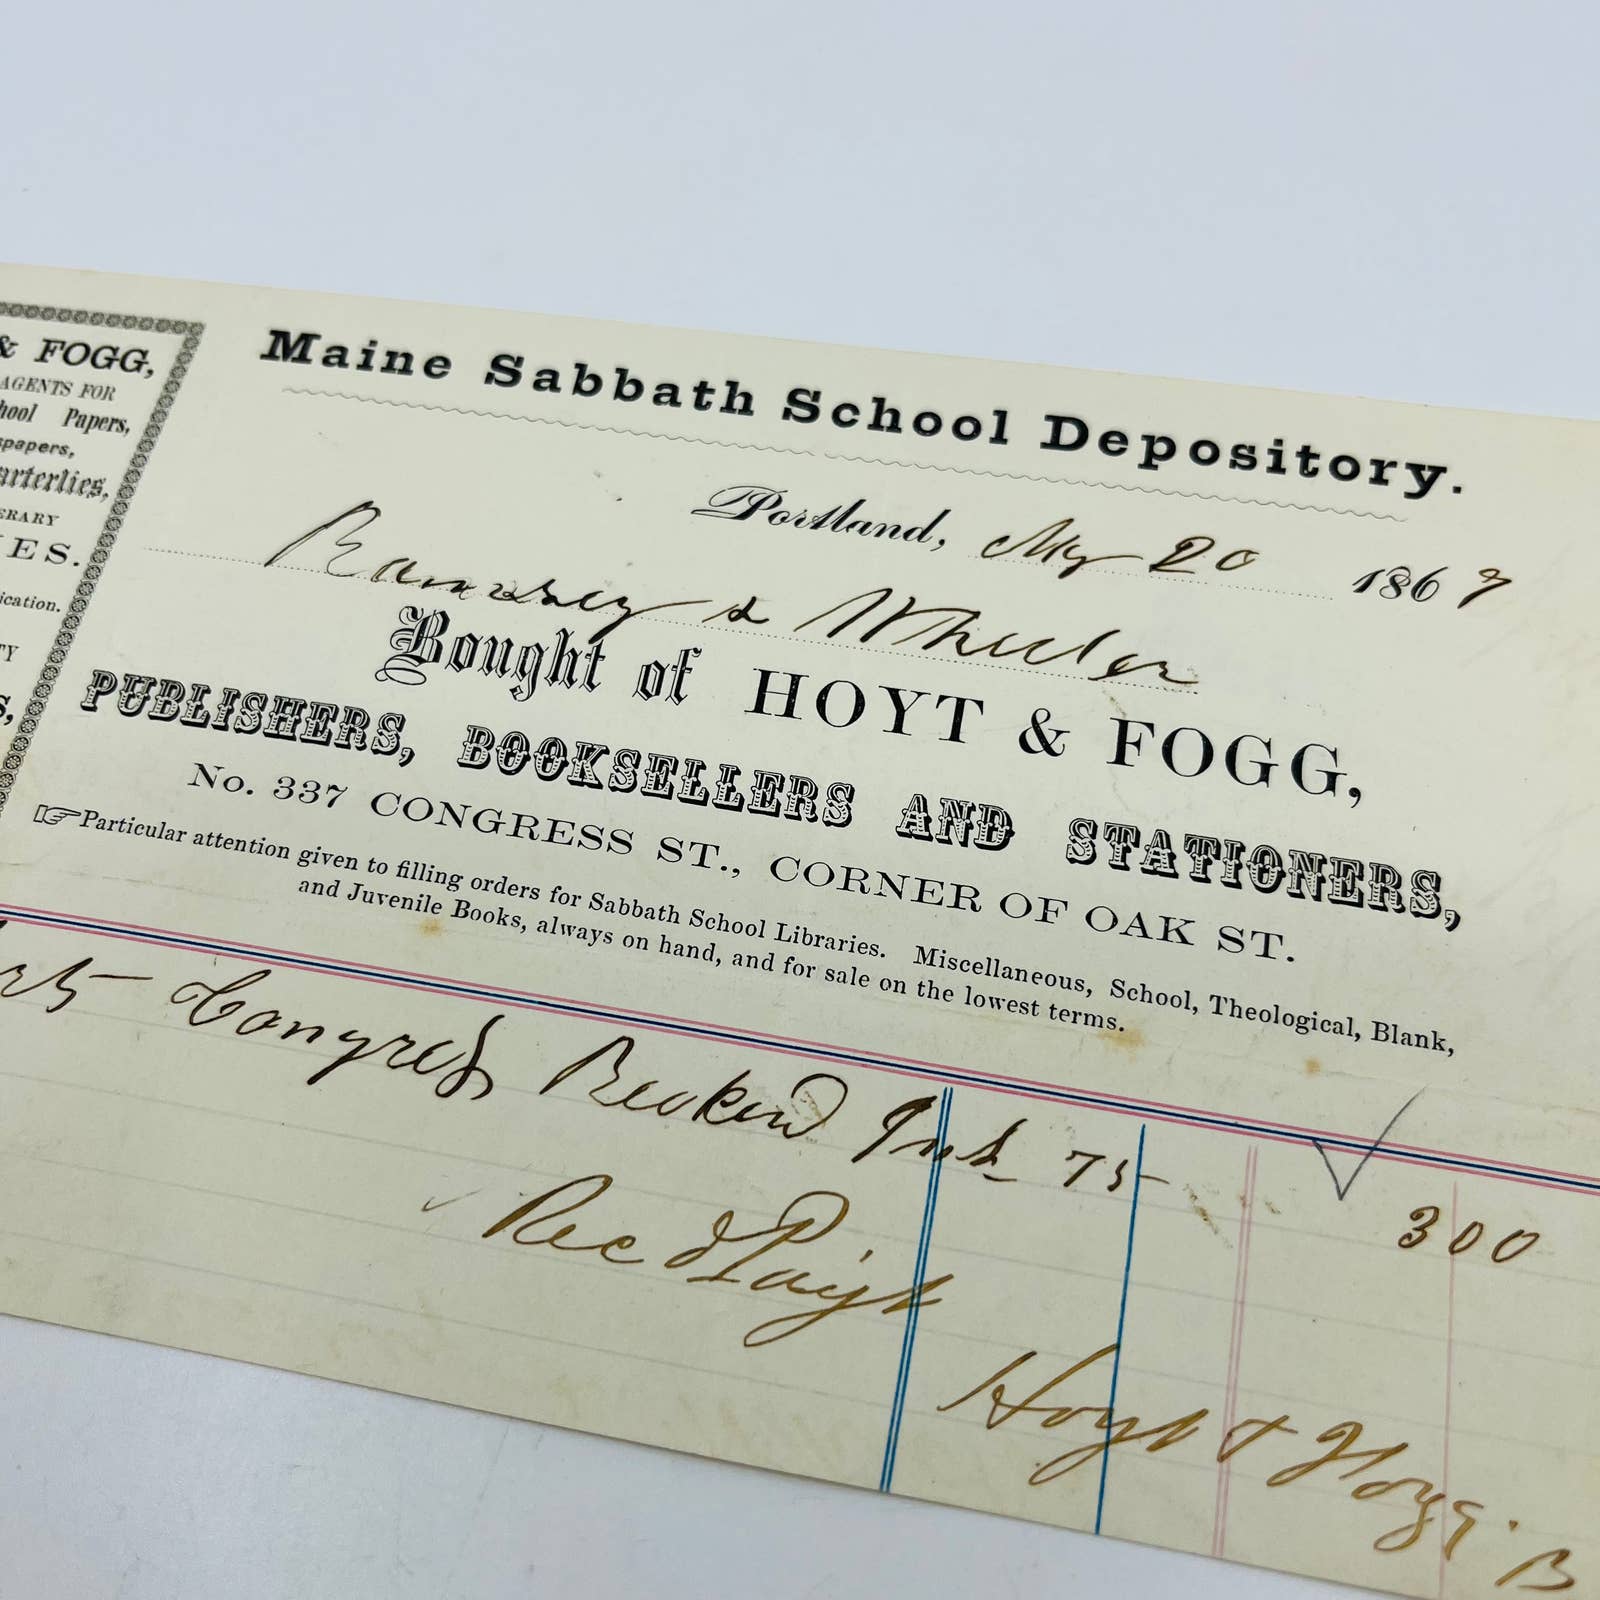 & FOGG,
AGENTS FOR
hool Papers,
spapers,
arterlies,
ERARY
IES.
ication.
TY
S,
Maine Sabbath School Depository.
Portland, My 20 1869
Ramsey & Wheeler
Bought of HOYT & FOGG,
PUBLISHERS, BOOKSELLERS AND STATIONERS,
No. 337 CONGRESS ST., CORNER OF OAK ST.
☞Particular attention given to filling orders for Sabbath School Libraries. Miscellaneous, School, Theological, Blank,
and Juvenile Books, always on hand, and for sale on the lowest terms.
Congress Record Ink 75 300
Rec d Payt
Hoyt & Fogg.
B